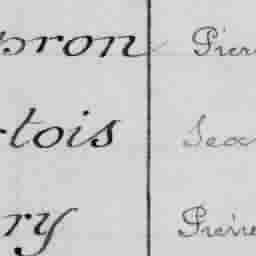 pron Pierr
tois Jea
ry Pierre